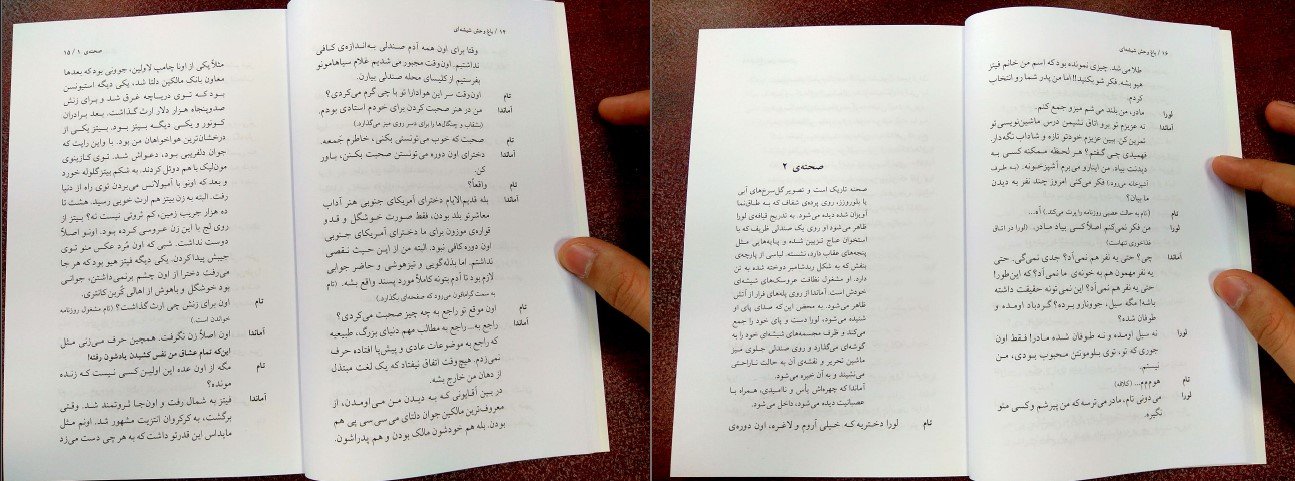 ۱۴ / باغ وحش شیشه‌ای
وقتا برای اون همه آدم صندلی به‌اندازه‌ی کافی
نداشتیم. اون‌وقت مجبور می‌شدیم غلام سیاهامونو
بفرستیم از کلیسای محله صندلی بیارن.
تام اون‌وقت سر این هوادارا تو با چی گرم می‌کردی؟
آماندا من در هنر صحبت کردن برای خودم استادی بودم.
(بشقاب و چنگال‌ها را برای دسر روی میز می‌گذارد.)
تام صحبت که خوب می‌تونستی بکنی، خاطرم جمعه.
آماندا دخترای اون دوره می‌تونستن صحبت بکنن، باور
کن.
تام واقعاً؟
آماندا بله قدیم‌الایام دخترای آمریکای جنوبی هنر آداب
معاشرتو بلد بودن. فقط صورت خوشگل و قد و
قواره‌ی موزون برای ما دخترای آمریکای جنوبی
اون دوره کافی نبود. البته من از این حیث نقصی
نداشتم. اما بذله‌گویی و تیزهوشی و حاضر جوابی
لازم بود تا آدم بتونه کاملاً مورد پسند واقع بشه. (تام
به سمت گرامافون می‌رود که صفحه‌ای بگذارد.)
تام اون موقع تو راجع به چه چیز صحبت می‌کردی؟
آماندا راجع به... راجع به مطالب مهم دنیای بزرگ. طبیعیه
که راجع به موضوعات عادی و پیش‌پا افتاده حرف
نمی‌زدم. هیچ‌وقت اتفاق نیفتاد که یک لغت مبتذل
از دهان من خارج بشه.
در بین آقایونی که به دیدن من می‌اومدن، از
معروف‌ترین مالکین جوان دلتای می‌سی‌سی‌پی هم
بودن. بله هم خودشون مالک بودن و هم پدراشون.
صحنه‌ی ۱ / ۱۵
مثلاً یکی از اونا چامپ لاولین، جوونی بود که بعدها
معاون بانک مالکین دلتا شد، یکی دیگه استیونسن
بود که توی دریاچه غرق شد و برای زنش
صدوپنجاه هزار دلار ارث گذاشت. بعد برادران
کوتور و یکی دیگه بیتز بود. بیتز یکی از
درخشان‌ترین هواخواهان من بود. با واین رایت که
جوان دلفریبی بود، دعواش شد. توی کازینوی
مون‌لیک با هم دوئل کردند. به شکم بیتز گلوله خورد
و بعد که اونو با آمبولانس می‌بردن توی راه از دنیا
رفت. البته به زن بیتز هم ارث خوبی رسید. هشت تا
ده هزار جریب زمین، کم ثروتی نیست نه؟ بیتز از
روی لج با این زن عروسی کرده بود. اونو اصلاً
دوست نداشت. شبی که اون مُرد عکس منو توی
جیبش پیدا کردن. یکی دیگه فیتز هیو بود که هر جا
می‌رفت دخترا از اون چشم برنمی‌داشتن، جوانی
بود خوشگل و باهوش از اهالی گرین کانتری.
تام اون برای زنش چی ارث گذاشت؟ (تام مشغول روزنامه
خواندن است.)
آماندا اون اصلاً زن نگرفت. همچین حرف می‌زنی مثل
این‌که تمام عشاق من نفس کشیدن یادشون رفته!
تام مگه از اون عده این اولین کسی نیست که زنده
مونده؟
آماندا فیتز به شمال رفت و اون‌جا ثروتمند شد. وقتی
برگشت، به کرکروان انتزیت مشهور شد. اونم مثل
مایداس این قدرتو داشت که به هر چی دست می‌زد
۱۶ / باغ وحش شیشه‌ای
طلا می‌شد. چیزی نمونده بود که اسم من خانم فیتز
هیو بشه. فکر شو بکنید!! اما من پدر شما رو انتخاب
کردم.
لورا مادر، من بلند می‌شم میزو جمع کنم.
آماندا نه عزیزم تو برو اتاق نشیمن درس ماشین‌نویسی‌تو
تمرین کن. ببین عزیزم خودتو تازه و شاداب نگه‌دار.
فهمیدی چی گفتم؟ هر لحظه ممکنه کسی به
دیدنت بیاد. من اینارو می‌برم آشپزخونه. (به طرف
آشپزخانه می‌رود) فکر می‌کنی امروز چند نفر به دیدن
ما بیان؟
تام (تام به حالت عصبی روزنامه را پرت می‌کند.) آه...
لورا من فکر نمی‌کنم اصلاً کسی بیاد مادر. (لورا در اتاق
غذاخوری تنهاست)
آماندا چی؟ حتی یه نفر هم نمی‌آد؟ جدی نمی‌گی. حتی
یه نفر مهمون هم به خونه‌ی ما نمی‌آد؟ که این‌طور!
حتی یه نفر هم نمی‌آد؟ این نمی‌تونه حقیقت داشته
باشه! مگه سیل، جونتارو برده؟ گردباد اومده و
طوفان شده؟
لورا نه سیل اومده و نه طوفان شده مادر! فقط اون
جوری که تو، توی بلومونتن محبوب بودی، من
نیستم.
تام هوم‌م‌م... (کلافه)
لورا می‌دونی تام، مادر می‌ترسه که من پیر شم و کسی منو
نگیره.
صحنه‌ی ۲
صحنه تاریک است و تصویر گل‌سرخ‌های آبی
یا بلوروزز، روی پرده‌ی شفاف که به طاق‌نما
آویزان شده دیده می‌شود. به تدریج قیافه‌ی لورا
ظاهر می‌شود او روی یک صندلی ظریف که با
استخوان عاج تزیین شده و پایه‌هایی مثل
پنجه‌های عقاب دارد، نشسته. لباسی از پارچه‌ی
بنفش که به شکل ربدشامبر دوخته شده به تن
دارد. او مشغول نظافت عروسک‌های شیشه‌ای
خودش است. آماندا از روی پله‌های فرار از آتش
ظاهر می‌شود. به محض این‌که صدای پای او
شنیده می‌شود، لورا دست و پای خود را جمع
می‌کند و ظرف مجسمه‌های شیشه‌ای خود را به
گوشه‌ای می‌گذارد و روی صندلی جلوی میز
ماشین تحریر و نقشه‌ی آن به حالت ناراحتی
می‌نشیند و به آن خیره می‌شود.
آماندا که چهره‌اش یأس و ناامیدی، همراه با
عصبانیت دیده می‌شود، داخل می‌شود.
تام لورا دختریه که خیلی آروم و لاغره، اون دوره‌ی